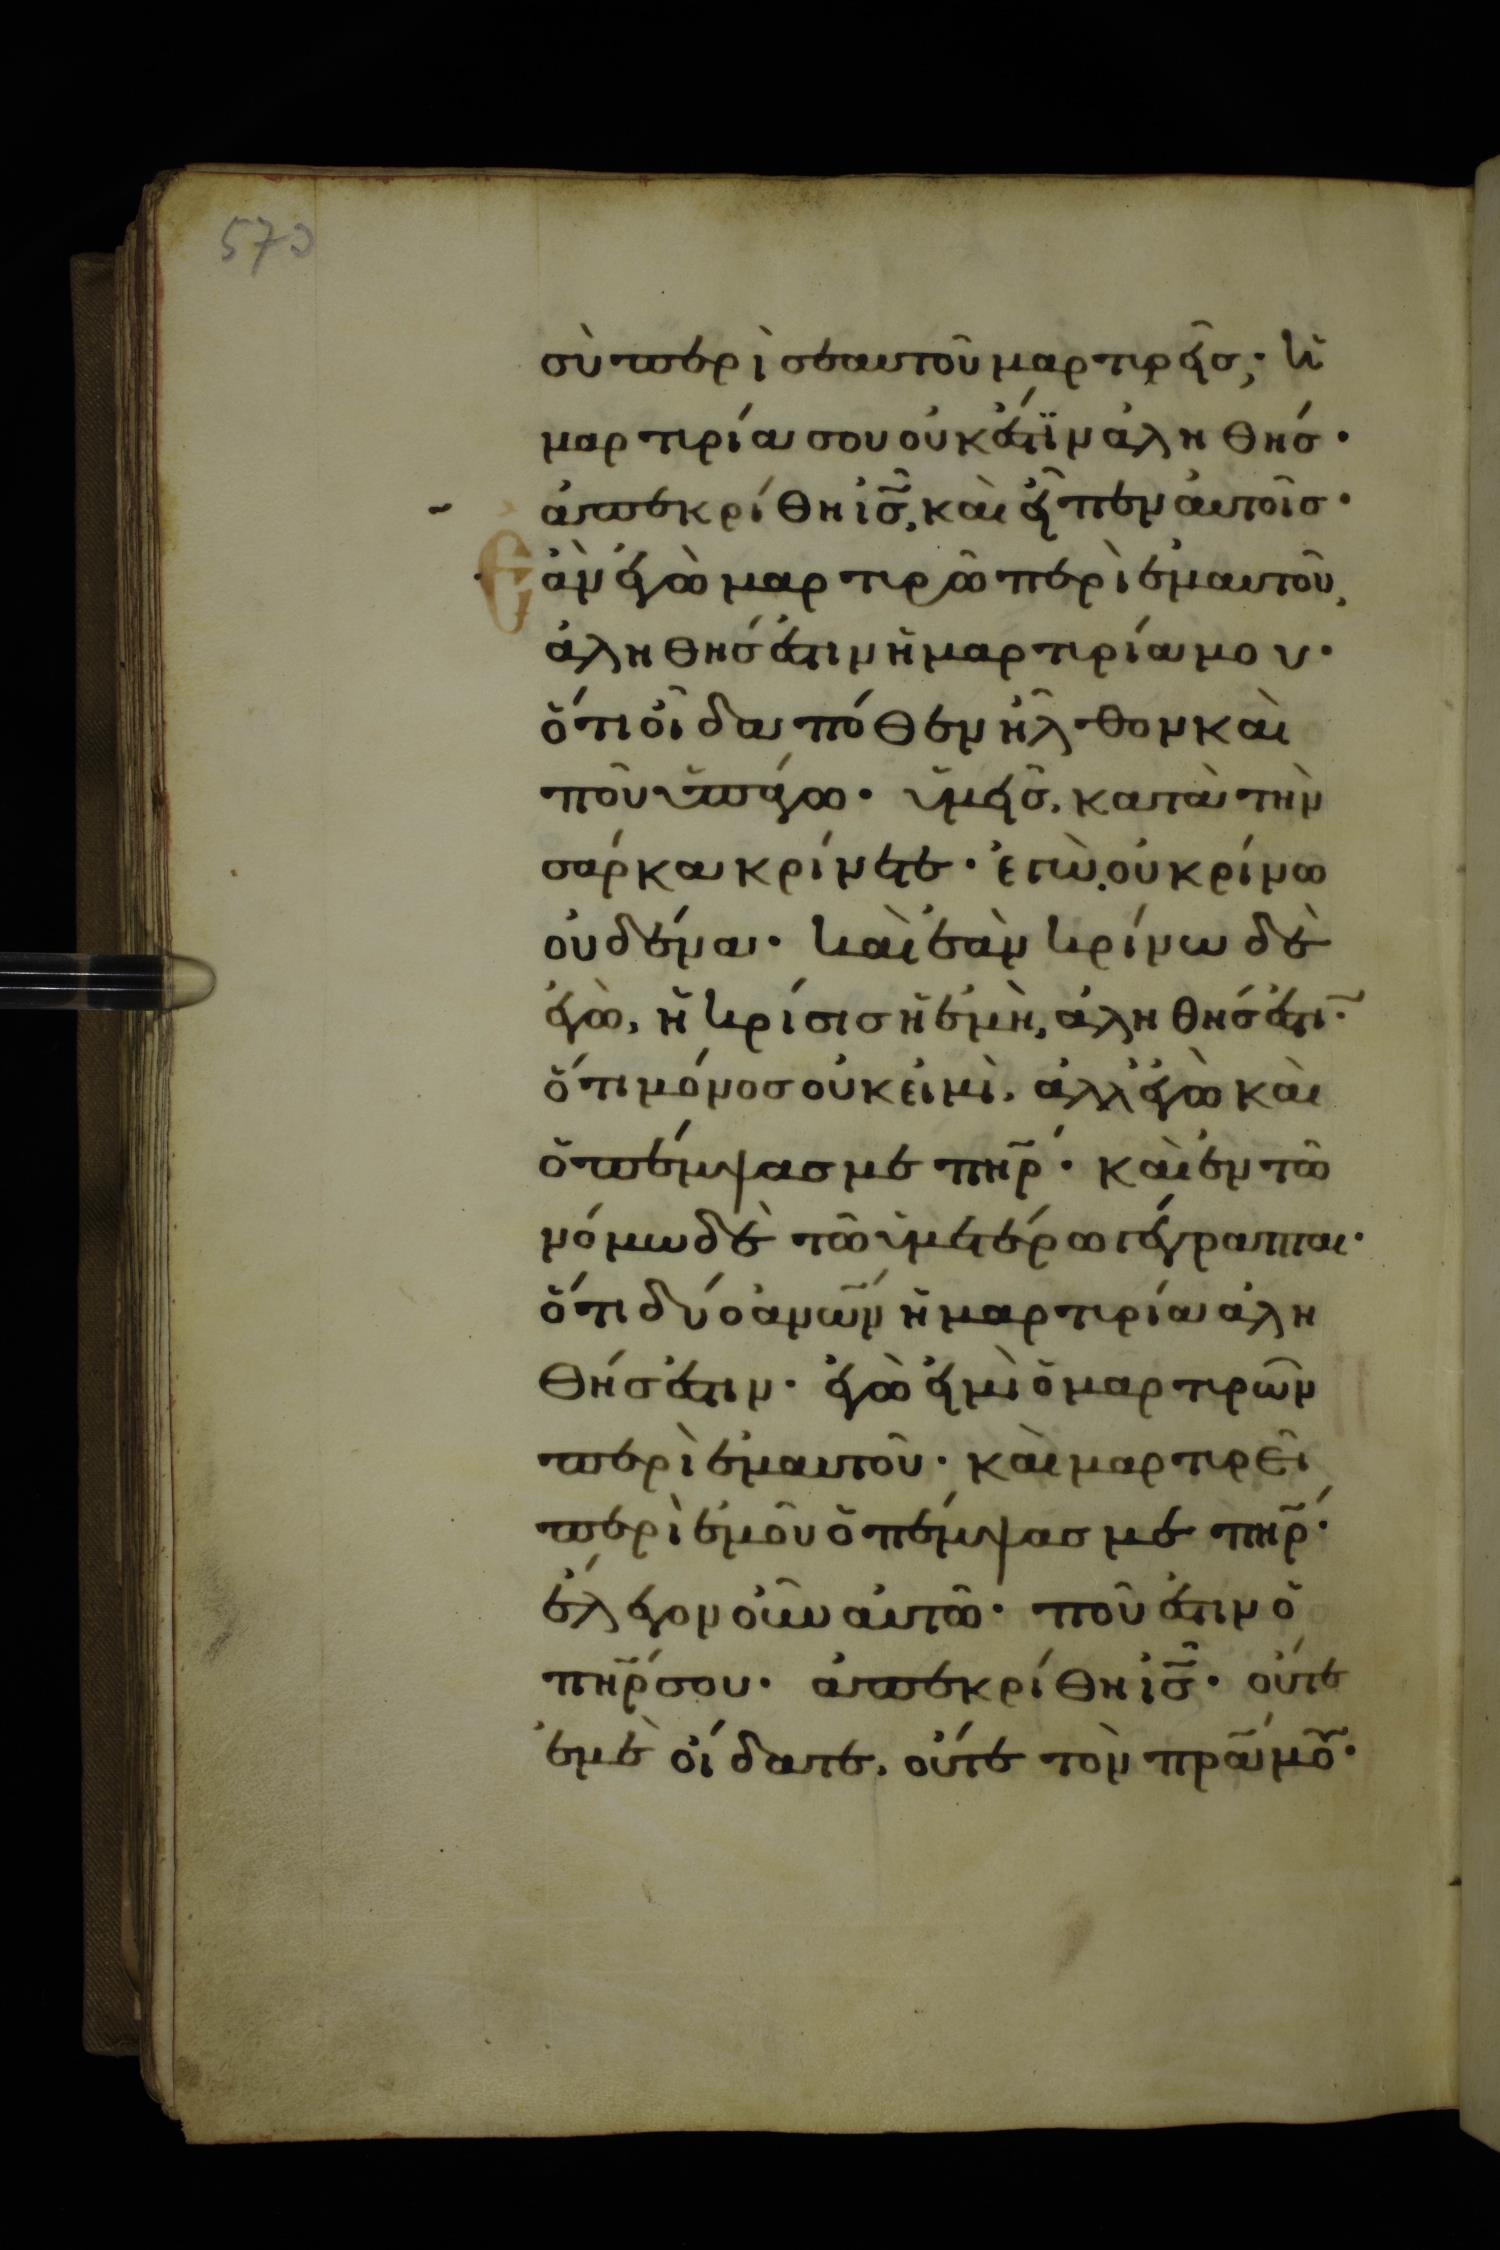 570
σὺ περὶ σεαυτοῦ μαρτυρεῖσ, ἡ
μαρτυρία σου οὐκ ἔστϊν ἀληθήσ·
ἀπεκρίθη ἰ̅σ̅, καὶ εἶπεν αὐτοῖσ·
Ἐὰν ἐγὼ μαρτυρῶ περὶ ἐμαυτοῦ,
ἀληθήσ ἐστιν ἡ μαρτυρία μου·
ὅτι οἶδα πόθεν ἦλθον καὶ
ποῦ ὑπάγω· ὑμεῖσ, κατὰ τὴν
σάρκα κρίνετε· ἐγὼ, οὐ κρίνω
οὐδένα· καὶ ἐὰν κρίνω δὲ
ἐγὼ, ἡ κρίσισ ἡ ἐμὴ, ἀληθήσ ἐστι̅·
ὅτι μόνοσ οὐκ εἰμὶ, ἀλλ' ἐγὼ καὶ
ὁ πέμψασ με πη̅ρ̅· καὶ ἐν τῶ
νόμω δὲ τῶ ὑμετέρω γέγραπται·
ὅτι δύο ἀνω̅ν̅ ἡ μαρτυρία ἀλη
θήσ ἐστιν· ἐγὼ εἰμὶ ὁ μαρτυρῶν
περὶ ἐμαυτοῦ· καὶ μαρτυρεῖ
περὶ ἐμοῦ ὁ πέμψασ με πη̅ρ̅·
ἔλεγον οὖν αὐτῶ· ποῦ ἐστιν ὁ
πη̅ρ̅ σου· ἀπεκρίθη ἰ̅σ̅· οὔτε
ἐμὲ οἴδατε, οὔτε τὸν πρ̅α̅ μου·